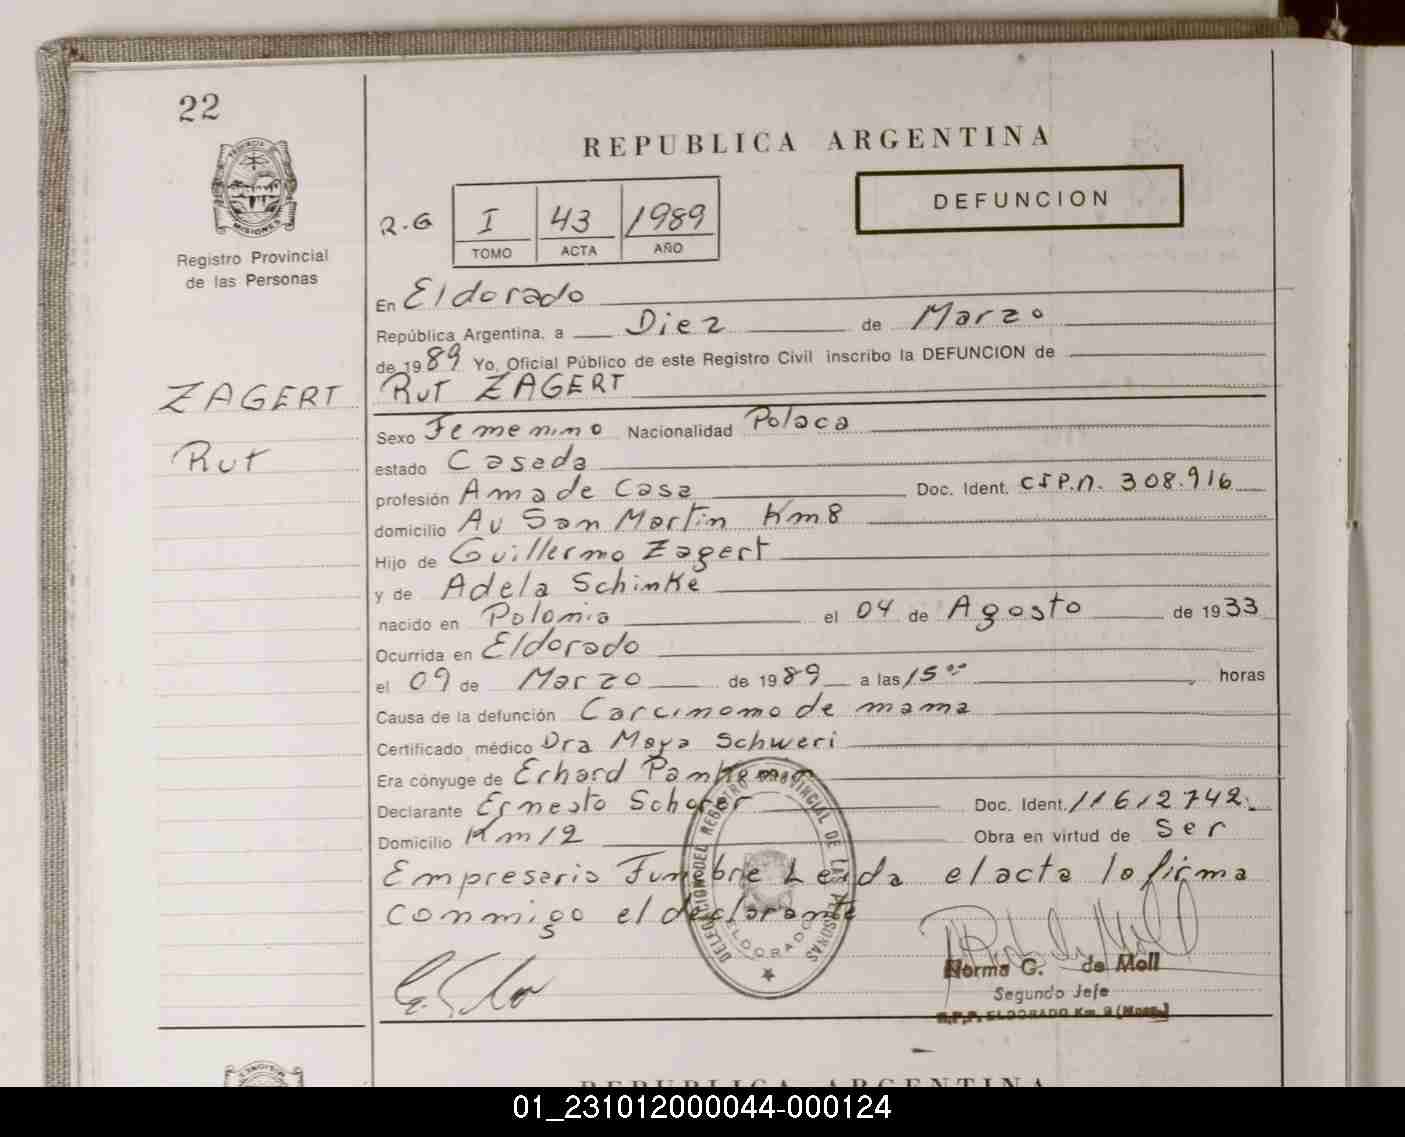 22
PROVINCIA DE
MISIONES
Registro Provincial
de las Personas
ZAGERT
Rut
REPUBLICA ARGENTINA
R.G I 43 1989
TOMO ACTA AÑO
DEFUNCION
En Eldorado
República Argentina, a Diez de Marzo
de 1989 Yo, Oficial Público de este Registro Civil inscribo la DEFUNCION de
Rut ZAGERT
Sexo Femenino Nacionalidad Polaca
estado Casada
profesión Ama de Casa Doc. Ident. C.I.P.n. 308.916
domicilio Av San Martin Km 8
Hijo de Guillermo Zagert
y de Adela Schinke
nacido en Polonia el 04 de Agosto de 1933
Ocurrida en Eldorado
el 09 de Marzo de 1989 a las 15°° horas
Causa de la defunción Carcinomo de mama
Certificado médico Dra Maya Schweri
Era cónyuge de Erhard
Declarante Ernesto Schorer Doc. Ident. 11612742.
Domicilio Km 12 Obra en virtud de Ser
Empresario Funebre Leida el acta lo firma
conmigo el declarante
DELEGACION DEL REGISTRO PROVINCIAL DE LAS PERSONAS
ELDORADO
Norma G. de Moll
Segundo Jefe
R.P.P. ELDORADO Km. 9 (Mnes.)
REPUBLICA ARGENTINA
01_231012000044-000124